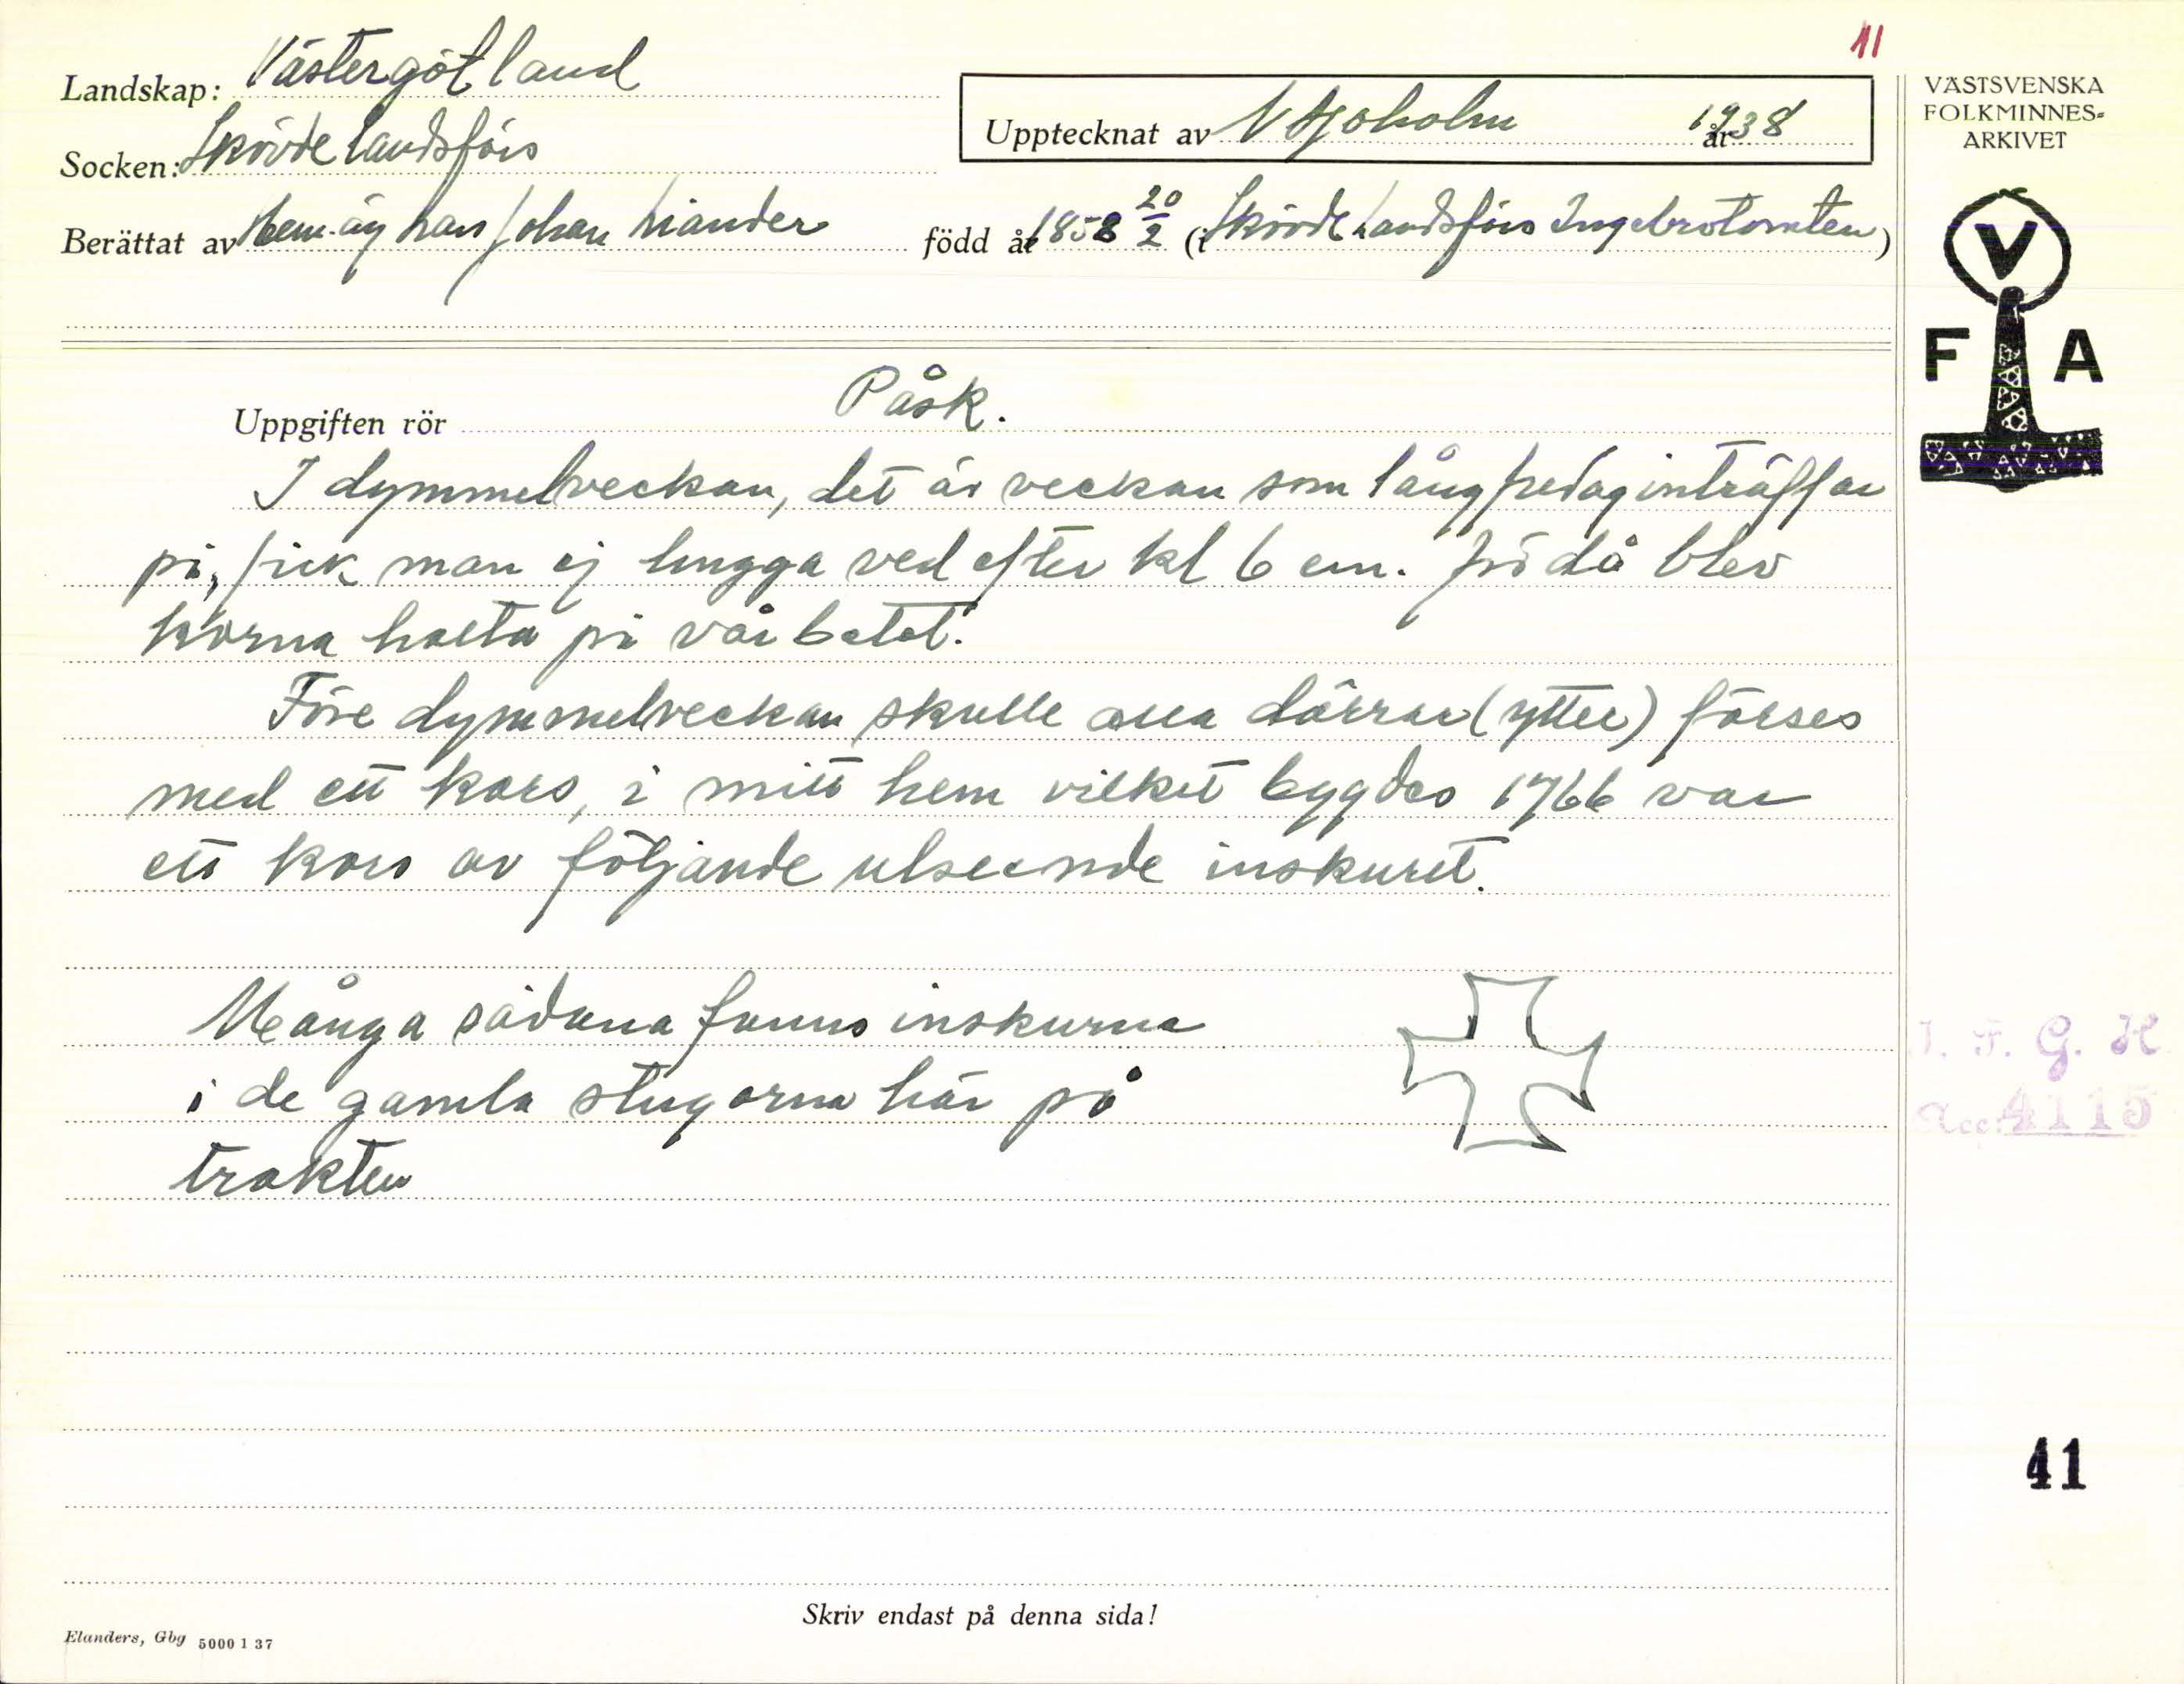 11
Landskap: Västergötland
Upptecknat av V Ljoholm år 1938
Socken: Skövde landsförs
Berättat av Hem.äg Lars Johan Liander född år 1858 20/2 (i Skövde Landsförs Ingebrotomten)
VÄSTSVENSKA
FOLKMINNES-
ARKIVET
V
F A
Uppgiften rör Påsk.
I dymmelveckan, det är veckan som långfredag inträffar
på, fick man ej hugga ved efter kl 6 em. för då blev
korna halta på vårbetet.
Före dymmelveckan skulle alla dörrar (ytter) förses
med ett kors, i mitt hem vilket byggdes 1766 var
ett kors av följande utseende inskuret.
Många sådana fanns inskurna
i de gamla stugorna här på
trakten
I. F. G. H.
Acc: 4115
41
Skriv endast på denna sida!
Elanders, Gbg 5000 1 37